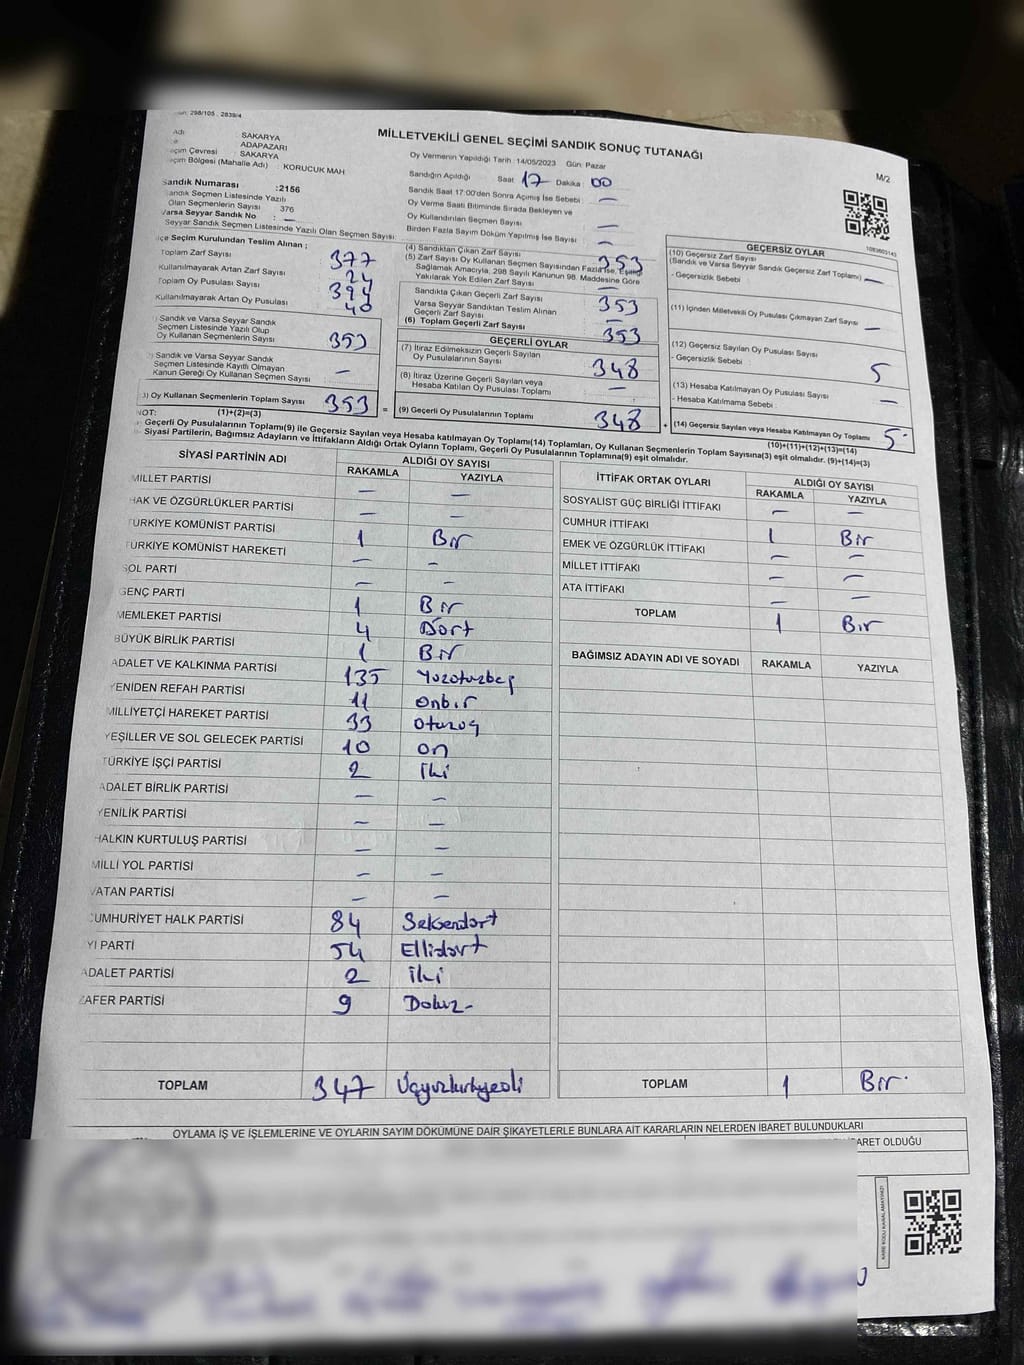 298/105 . 2839/4
Adı SAKARYA
ADAPAZARI
Seçim Çevresi : SAKARYA
Seçim Bölgesi (Mahalle Adı) : KORUCUK MAH
MİLLETVEKİLİ GENEL SEÇİMİ SANDIK SONUÇ TUTANAĞI
M/2
Oy Vermenin Yapıldığı Tarih : 14/05/2023 Gün: Pazar
Sandığın Açıldığı Saat : 17 Dakika : 00
Sandık Saat 17:00'den Sonra Açılmış İse Sebebi : —
Oy Verme Saati Bitiminde Sırada Bekleyen ve
Oy Kullandırılan Seçmen Sayısı : —
Birden Fazla Sayım Döküm Yapılmış İse Sayısı : —
Sandık Numarası : 2156
Sandık Seçmen Listesinde Yazılı
Olan Seçmenlerin Sayısı : 376
Varsa Seyyar Sandık No : —
Seyyar Sandık Seçmen Listesinde Yazılı Olan Seçmen Sayısı:
İlçe Seçim Kurulundan Teslim Alınan ;
Toplam Zarf Sayısı 377
Kullanılmayarak Artan Zarf Sayısı 24
Toplam Oy Pusulası Sayısı 394
Kullanılmayarak Artan Oy Pusulası 40
Sandık ve Varsa Seyyar Sandık
Seçmen Listesinde Yazılı Olup
Oy Kullanan Seçmenlerin Sayısı : 353
Sandık ve Varsa Seyyar Sandık
Seçmen Listesinde Kayıtlı Olmayan
Kanun Gereği Oy Kullanan Seçmen Sayısı : —
3) Oy Kullanan Seçmenlerin Toplam Sayısı 353
(1)+(2)=(3)
(4) Sandıktan Çıkan Zarf Sayısı 353
(5) Zarf Sayısı Oy Kullanan Seçmen Sayısından Fazla İse, Eşitliği
Sağlamak Amacıyla, 298 Sayılı Kanunun 98. Maddesine Göre
Yakılarak Yok Edilen Zarf Sayısı —
Sandıkta Çıkan Geçerli Zarf Sayısı 353
Varsa Seyyar Sandıktan Teslim Alınan
Geçerli Zarf Sayısı —
(6) Toplam Geçerli Zarf Sayısı 353
GEÇERLİ OYLAR
(7) İtiraz Edilmeksizin Geçerli Sayılan
Oy Pusulalarının Sayısı 348
(8) İtiraz Üzerine Geçerli Sayılan veya
Hesaba Katılan Oy Pusulası Toplamı —
= (9) Geçerli Oy Pusulalarının Toplamı 348 +
1093603143
GEÇERSİZ OYLAR
(10) Geçersiz Zarf Sayısı
(Sandık ve Varsa Seyyar Sandık Geçersiz Zarf Toplamı) —
- Geçersizlik Sebebi :
(11) İçinden Milletvekili Oy Pusulası Çıkmayan Zarf Sayısı —
(12) Geçersiz Sayılan Oy Pusulası Sayısı 5
- Geçersizlik Sebebi :
(13) Hesaba Katılmayan Oy Pusulası Sayısı —
- Hesaba Katılmama Sebebi :
(14) Geçersiz Sayılan veya Hesaba Katılmayan Oy Toplamı 5
(10)+(11)+(12)+(13)=(14)
NOT:
Geçerli Oy Pusulalarının Toplamı(9) ile Geçersiz Sayılan veya Hesaba katılmayan Oy Toplamı(14) Toplamları, Oy Kullanan Seçmenlerin Toplam Sayısına(3) eşit olmalıdır. (9)+(14)=(3)
Siyasi Partilerin, Bağımsız Adayların ve İttifakların Aldığı Ortak Oyların Toplamı, Geçerli Oy Pusulalarının Toplamına(9) eşit olmalıdır.
SİYASİ PARTİNİN ADI ALDIĞI OY SAYISI
RAKAMLA YAZIYLA
MİLLET PARTİSİ — —
HAK VE ÖZGÜRLÜKLER PARTİSİ — —
TÜRKİYE KOMÜNİST PARTİSİ 1 Bir
TÜRKİYE KOMÜNİST HAREKETİ — —
SOL PARTİ — —
GENÇ PARTİ 1 Bir
MEMLEKET PARTİSİ 4 Dört
BÜYÜK BİRLİK PARTİSİ 1 Bir
ADALET VE KALKINMA PARTİSİ 135 Yüzotuzbeş
YENİDEN REFAH PARTİSİ 11 Onbir
MİLLİYETÇİ HAREKET PARTİSİ 33 Otuzüç
YEŞİLLER VE SOL GELECEK PARTİSİ 10 On
TÜRKİYE İŞÇİ PARTİSİ 2 İki
ADALET BİRLİK PARTİSİ — —
YENİLİK PARTİSİ — —
HALKIN KURTULUŞ PARTİSİ — —
MİLLİ YOL PARTİSİ — —
VATAN PARTİSİ — —
CUMHURİYET HALK PARTİSİ 84 Seksendört
İYİ PARTİ 54 Ellidört
ADALET PARTİSİ 2 İki
ZAFER PARTİSİ 9 Dokuz
TOPLAM 347 Üçyüzkırkyedi
İTTİFAK ORTAK OYLARI ALDIĞI OY SAYISI
RAKAMLA YAZIYLA
SOSYALİST GÜÇ BİRLİĞİ İTTİFAKI — —
CUMHUR İTTİFAKI 1 Bir
EMEK VE ÖZGÜRLÜK İTTİFAKI — —
MİLLET İTTİFAKI — —
ATA İTTİFAKI — —
TOPLAM 1 Bir
BAĞIMSIZ ADAYIN ADI VE SOYADI RAKAMLA YAZIYLA
TOPLAM 1 Bir
OYLAMA İŞ VE İŞLEMLERİNE VE OYLARIN SAYIM DÖKÜMÜNE DAİR ŞİKAYETLERLE BUNLARA AİT KARARLARIN NELERDEN İBARET BULUNDUKLARI
İBARET OLDUĞU